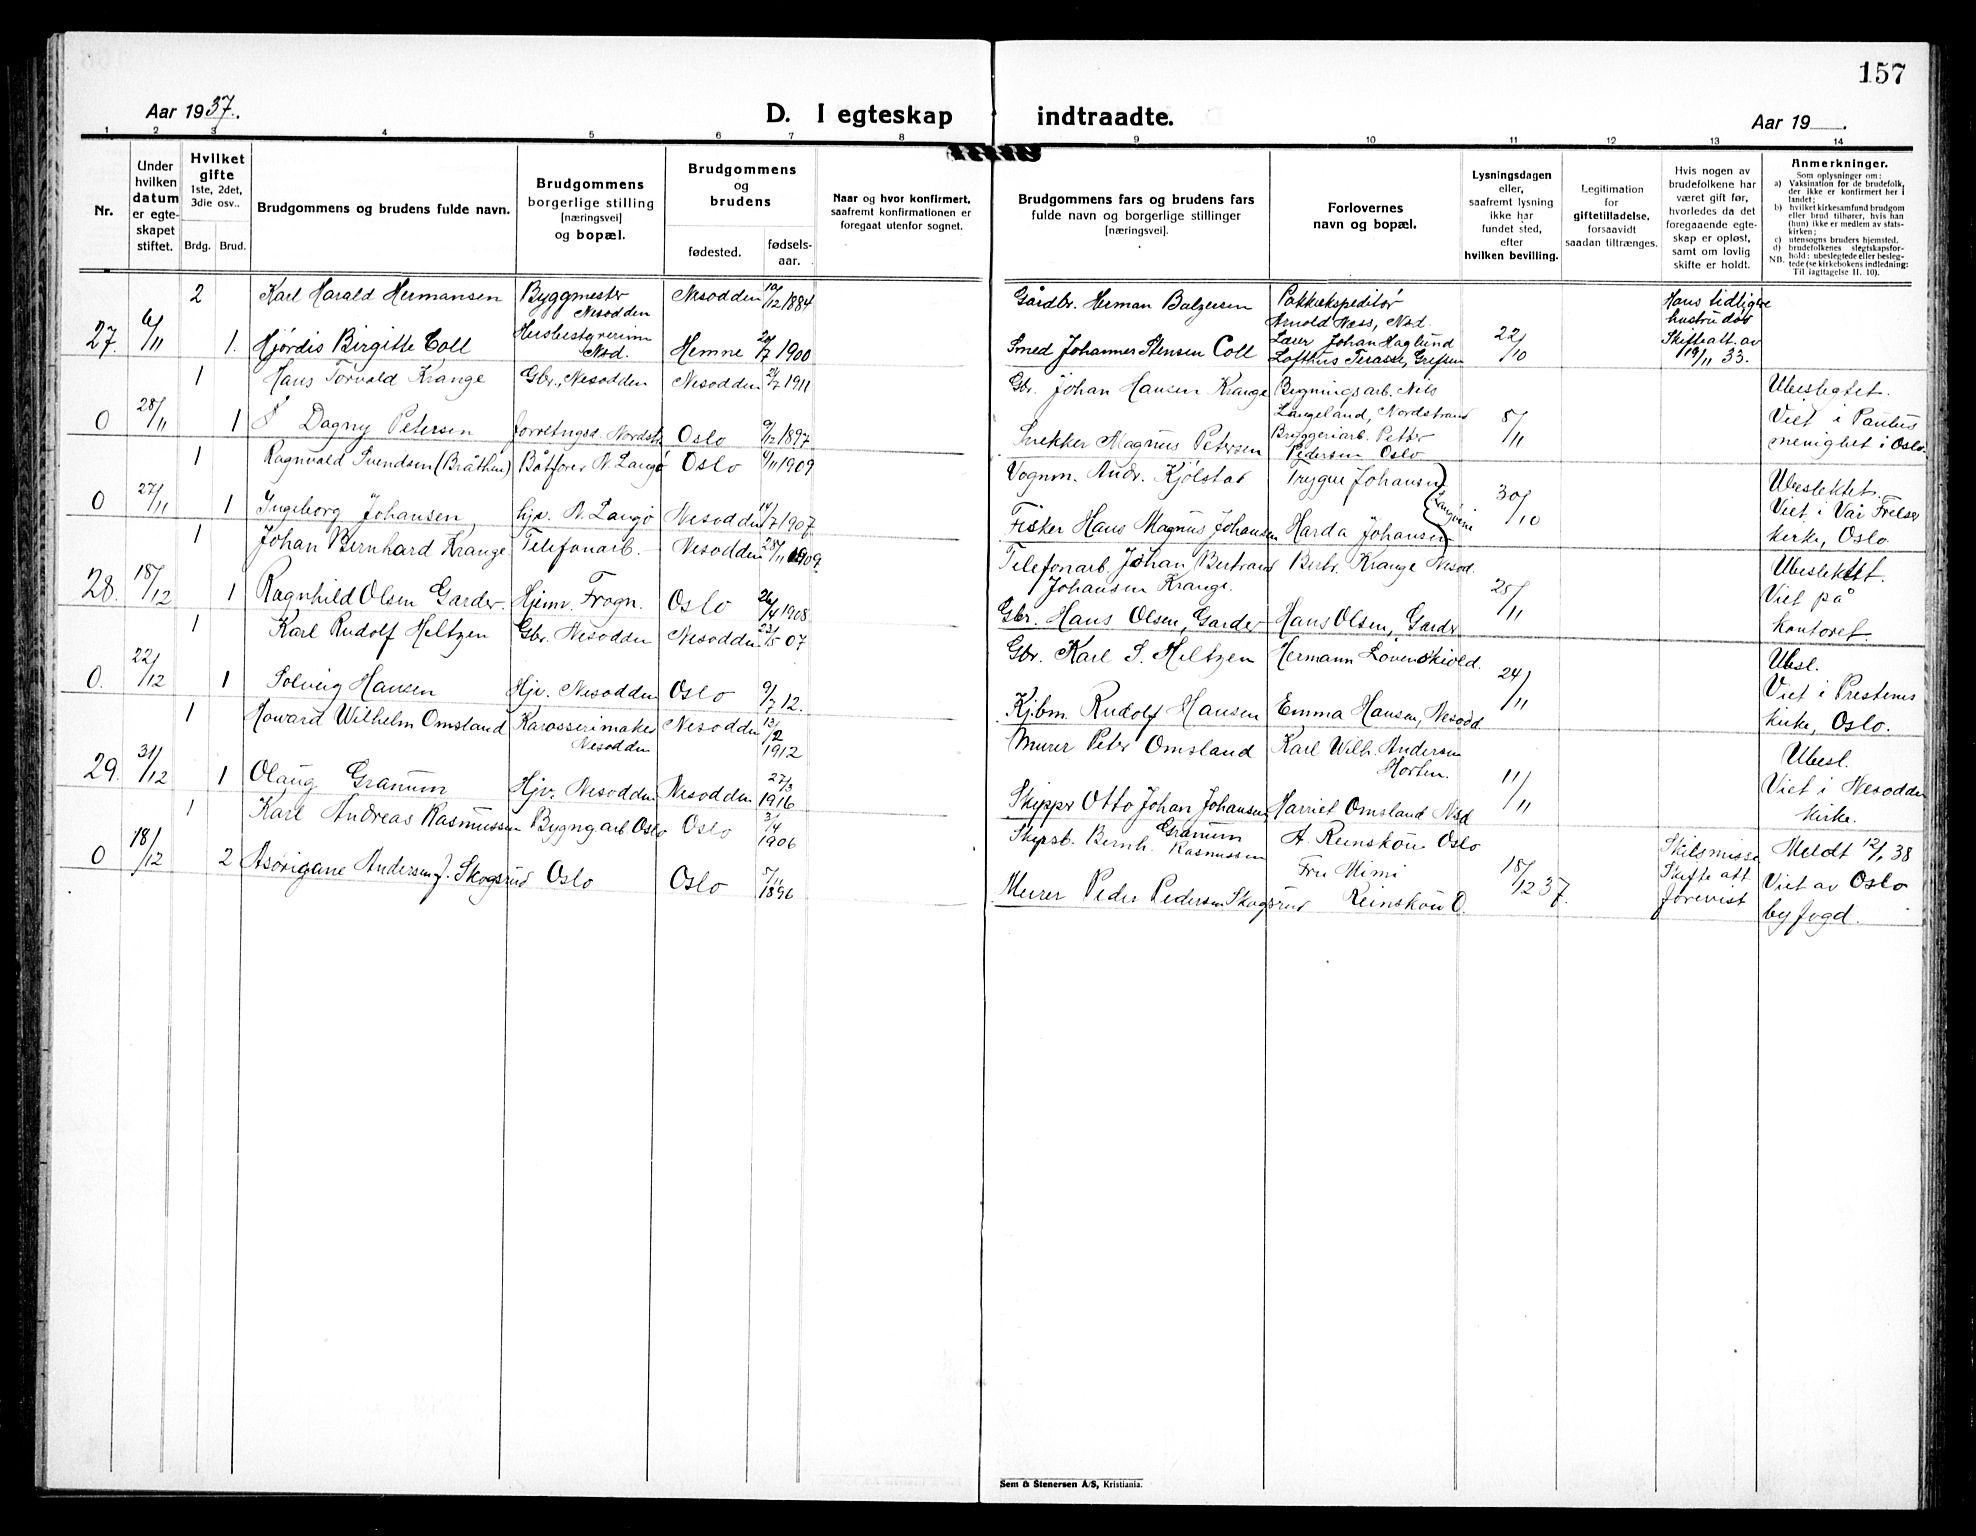 157
Aar 1937.
D. I egteskap indtraadte.
Aar 19 .
1 2 3 4 5 6 7 8 9 10 11 12 13 14
Nr.
Under hvilken datum er egte-skapet stiftet.
Hvilket gifte
1ste, 2det, 3die osv..
Brdg. Brud.
Brudgommens og brudens fulde navn.
Brudgommens borgerlige stilling [næringsvei] og bopæl.
Brudgommens og brudens
fødested.
fødsels-aar.
Naar og hvor konfirmert, saafremt konfirmationen er foregaat utenfor sognet.
Brudgommens fars og brudens fars fulde navn og borgerlige stillinger [næringsvei].
Forlovernes navn og bopæl.
Lysningsdagen eller, saafremt lysning ikke har fundet sted, efter hvilken bevilling.
Legitimation for giftetilladelse, forsaavidt saadan tiltrænges.
Hvis nogen av brudefolkene har været gift før, hvorledes da det foregaaende egte-skap er opløst, samt om lovlig skifte er holdt.
Anmerkninger.
Som oplysninger om:
a) Vaksination for de brudefolk, der ikke er konfirmert her i landet;
b) hvilket kirkesamfund brudgom eller brud tilhører, hvis han (hun) ikke er medlem av stats-kirken;
c) utensogns bruders hjemsted.
d) brudefolkenes slegtskapsfor-hold: ubeslegtede eller besleg-tede (se kirkebokens indledning: NB. Til iagttagelse II. 10).
2 Karl Harald Hermansen Byggmester Nesodden Nesodden 19/12 1884 Gårdbr. Herman Balzersen Pakkekspeditør Arnold Næss, Nsd. Hans tidligere hustru død
27. 6/11 1. Hjørdis Birgitte Coll Husbestyrerinne Nsd. Hemne 20/7 1900 Smed Johannes Stensen Coll Lærer Johan Haglund Lofthus Terasse, Grefsen 22/10 Skifteatt. av 19/11 33.
1 Hans Torvald Krange Gbr., Nesodden Nesodden 24/7 1911 Gbr. Johan Hansen Krange Bygningsarb. Nils Langeland, Nordstrand Ubeslegtet.
0 28/11 1 Dagny Petersen forretngsd. Nordstr. Oslo 9/12 1897 Snekker Magnus Petersen Bryggeriarb. Petter Pedersen Oslo 5/11 Viet i Paulus menighet i Oslo.
1 Ragnvald Svendsen (Bråthen) Båtfører N. Langø Oslo 6/11 1909 Vognm. Andr. Kjølstad Trygve Johansen Ubeslektet.
0 27/11 1 Ingeborg Johansen, hjv. N. Langø Nesodden 14/7 1907 Fisker Hans Magnus Johansen Harda Johansen 30/10 Viet i Vår Frelser kirke, Oslo
1 Johan Bernhard Krange Telefonarb. Nesodden 28/11 1909. Telefonarb. Johan Bertrand Johansen Krange. Bertr. Krange Nesod. Ubeslektet.
28. 18/12 1 Ragnhild Olsen Garder. Hjem. Frogn. Oslo 26/4 1908 Gbr. Hans Olsen, Garder Hans Olsen, Garder 25/11 Viet på kontoret.
1 Karl Rudolf Heltzen Gbr. Nesodden Nesodden 23/5 07 Gbr. Karl S. Heltzen Hermann Løvenskiold. Ubesl.
0. 22/12 1 Solveig Hansen Hjv. Nesodden Oslo 9/7 12. Kjbm. Rudolf Hansen Emma Hansen, Nesodd 24/11 Viet i Prestenes kirke, Oslo.
1 Howard Wilhelm Omsland Karosserimaker Nesodden Nesodden 13/2 1912 Murer Peter Omsland Karl Wilh. Andersen Horten. Ubesl.
29. 31/12 1 Olaug Granum Hjv. Nesodden Nesodden 27/3 1916 Skipper Otto Johan Johansen Granum Harriet Omsland Nsd 11/11 Viet i Nesodden kirke.
1 Karl Andreas Rasmussen Bygngarb Oslo Oslo 3/4 1906 Skipsb. Bernh. Rasmussen A. Reinskou Oslo Skilsmisse Meldt 12/1 38
0 18/12 2 Andersen f. Skogsrud Oslo Oslo 5/11 1896 Murer Peder Pedersen Skogsrud Fru Mimi Reinskou O. 18/12 37. Skifte att forevist Viet av Oslo byfogd.
Sem & Stenersen A/S, Kristiania.